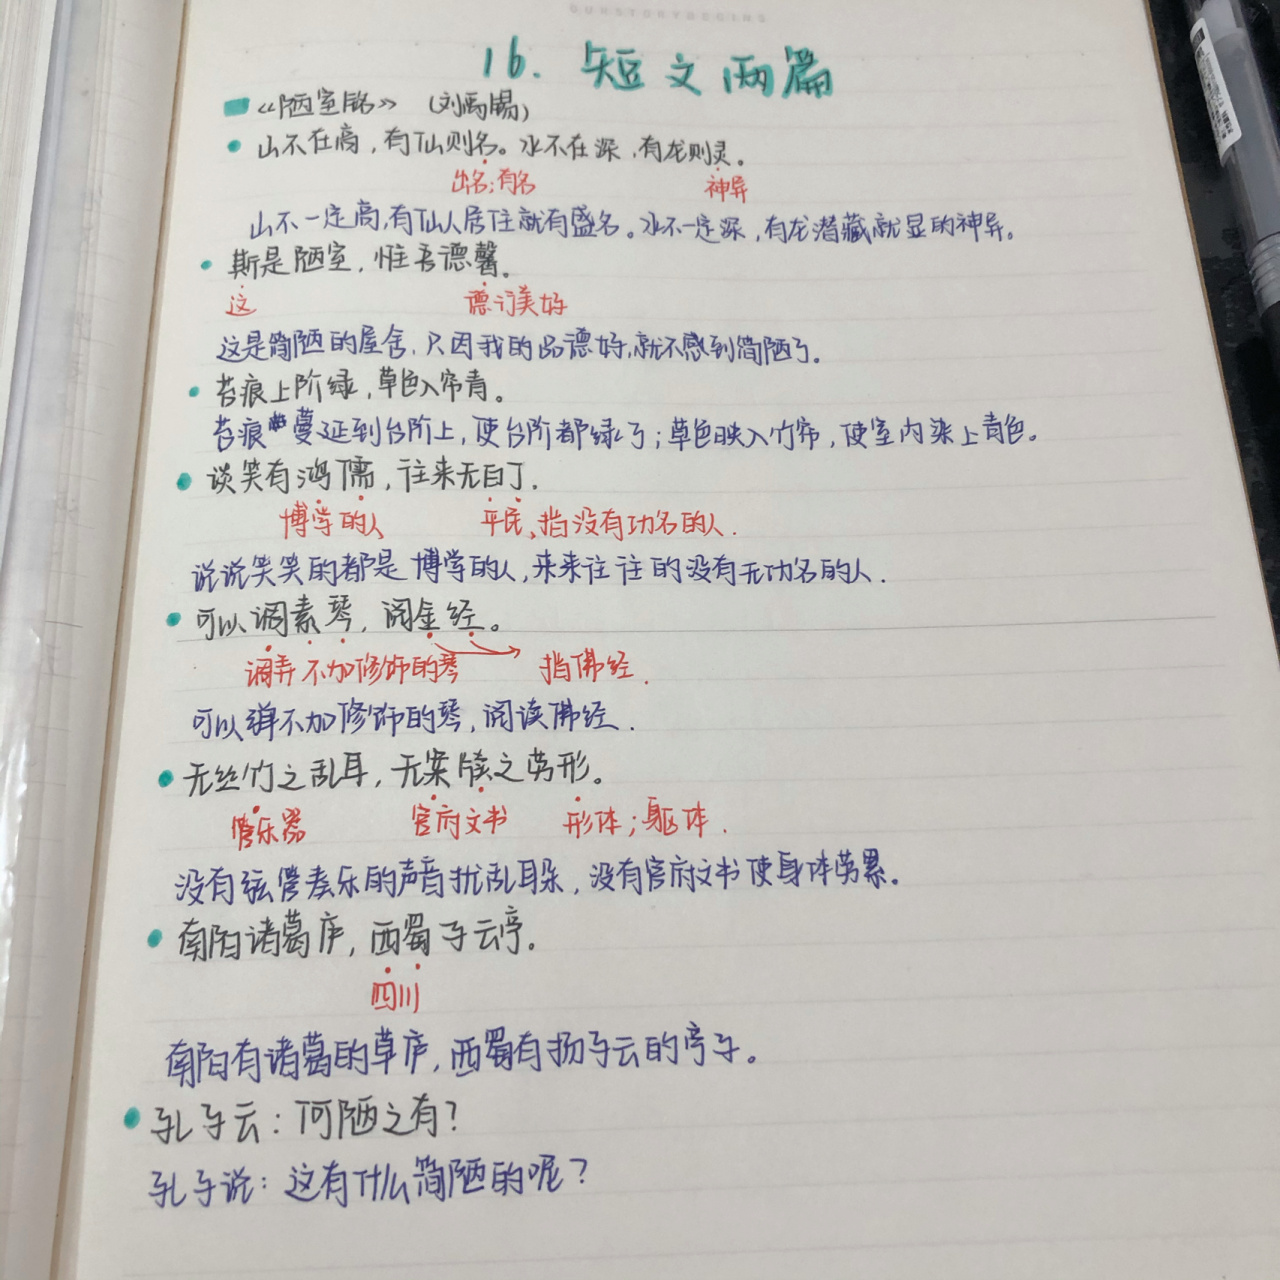 OURSTORYBEGINS
16. 短文两篇
《陋室铭》 (刘禹锡)
山不在高,有仙则名。水不在深,有龙则灵。
出名;有名 神异
山不一定高,有仙人居住就有盛名。水不一定深,有龙潜藏就显的神异。
斯是陋室,惟吾德馨。
这 德行美好
这是简陋的屋舍,只因我的品德好,就不感到简陋了。
苔痕上阶绿,草色入帘青。
苔痕蔓延到台阶上,使台阶都绿了;草色映入竹帘,使室内染上青色。
谈笑有鸿儒,往来无白丁.
博学的人 平民,指没有功名的人.
说说笑笑的都是博学的人,来来往往的没有无功名的人.
可以调素琴,阅金经。
调弄 不加修饰的琴 指佛经.
可以弹不加修饰的琴,阅读佛经.
无丝竹之乱耳,无案牍之劳形。
管乐器 官府文书 形体;躯体.
没有弦管奏乐的声音扰乱耳朵,没有官府文书使身体劳累。
南阳诸葛庐,西蜀子云亭。
四川
南阳有诸葛的草庐,西蜀有扬子云的亭子。
孔子云:何陋之有?
孔子说:这有什么简陋的呢?